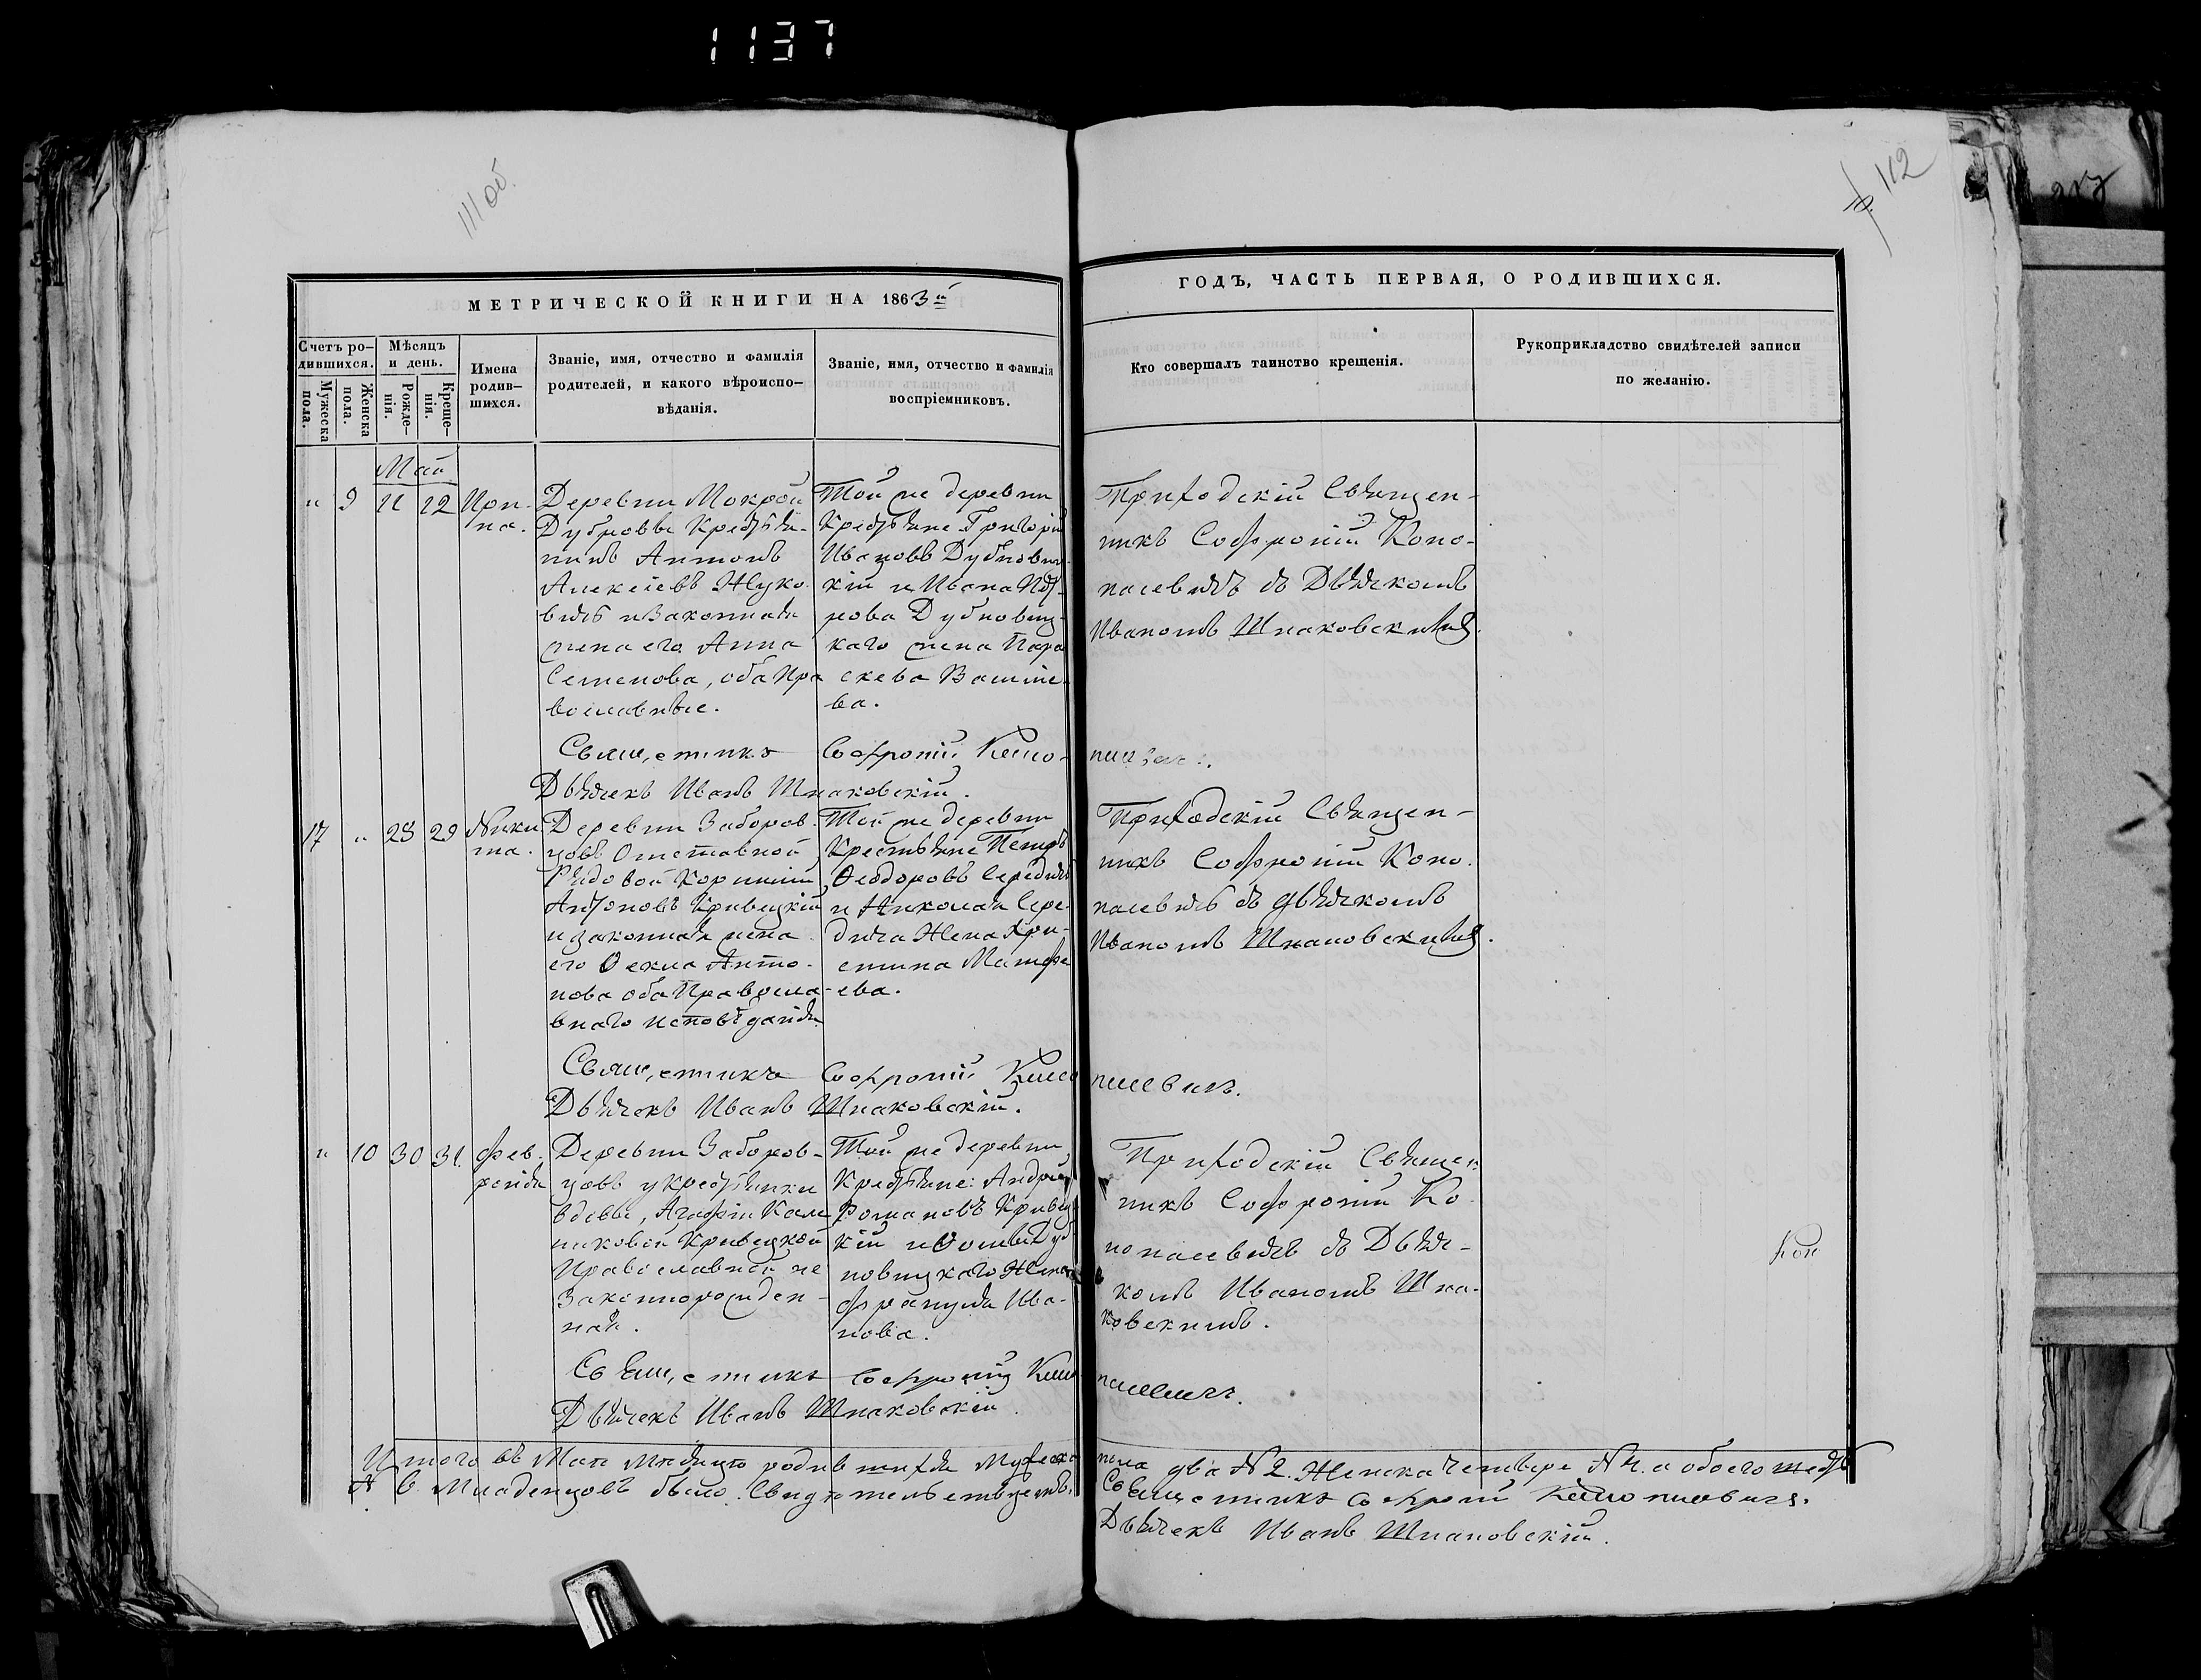 1137
111 об.
112
МЕТРИЧЕСКОЙ КНИГИ НА 1863й
ГОДЪ, ЧАСТЬ ПЕРВАЯ, О РОДИВШИХСЯ.
Счетъ ро-
дившихся.
Мужеска
пола.
Женска
пола.
Мѣсяцъ
и день.
Рожде-
нія.
Креще-
нія.
Имена
родив-
шихся.
Званіе, имя, отчество и фамилія
родителей, и какого вѣроиспо-
вѣданія.
Званіе, имя, отчество и фамилія
воспріемниковъ.
Кто совершалъ таинство крещенія.
Рукоприкладство свидѣтелей записи
по желанію.
Май
" 9 21 22 Ири-
на.
Деревни Мокрой
Дубровы Крестья-
нинъ Антонъ
Алексіевъ Жуко-
вичъ и Законная
жена его Анна
Семенова, оба Пра
вославные.
Той же деревни
Крестьяне Григорій
Ивановъ Дубновиц-
кій и Ивана Пет-
рова Дубновиц-
каго жена Пара
скева Василіе-
ва.
Приходскій Священ-
никъ Софроній Коно-
пасевичъ съ Дьячкомъ
Иваномъ Шпаковскимъ.
Священникъ Софроній Коно-
пасевичъ.
Дьячекъ Иванъ Шпаковскій.
17 " 28 29 Ники-
та.
Деревни Заборов-
цовъ Отставной
Рядовой Корнилій
Антоновъ Кривецкій
и законная жена
его Ѳекла Анто-
нова оба Правосла-
внаго исповѣданія.
Той же деревни
Крестьяне Петръ
Ѳеодоровъ Середичъ
и Николая Сере-
дича Жена Хри-
стина Матфе
ева.
Приходскій Священ-
никъ Софроній Коно-
пасевичъ съ дьячкомъ
Иваномъ Шпаковскимъ.
Священникъ Софроній Коно
пасевичъ.
Дьячекъ Иванъ Шпаковскій.
" 10 30 31. Фев-
ронія
Деревни Заборов-
цовъ у крестьянки
вдовы, Агафіи Кали
никовой Кривецкой
Православной не
Законнорожден-
ная.
Той же деревни
Крестьяне: Андрей
Романовъ Кривец-
кій и Ѳомы Дуб
новицкаго Жена
Францъя Ива-
нова.
Приходскій Священ
никъ Софроній Ко-
нопасевичъ съ Дьяч-
комъ Иваномъ Шпа-
ковскимъ.
Священникъ Софроній Коно
пасевичъ.
Дьячекъ Иванъ Шпаковскій.
Итого въ Маѣ Мѣсяцѣ родившихся Мужеска
пола два N 2. Женска Четыре N 4. а обоего шесть
N 6. Младенцовъ было. Свидѣтельствуемъ,
Священникъ Софроній Конопасевичъ.
Дьячекъ Иванъ Шпаковскій.